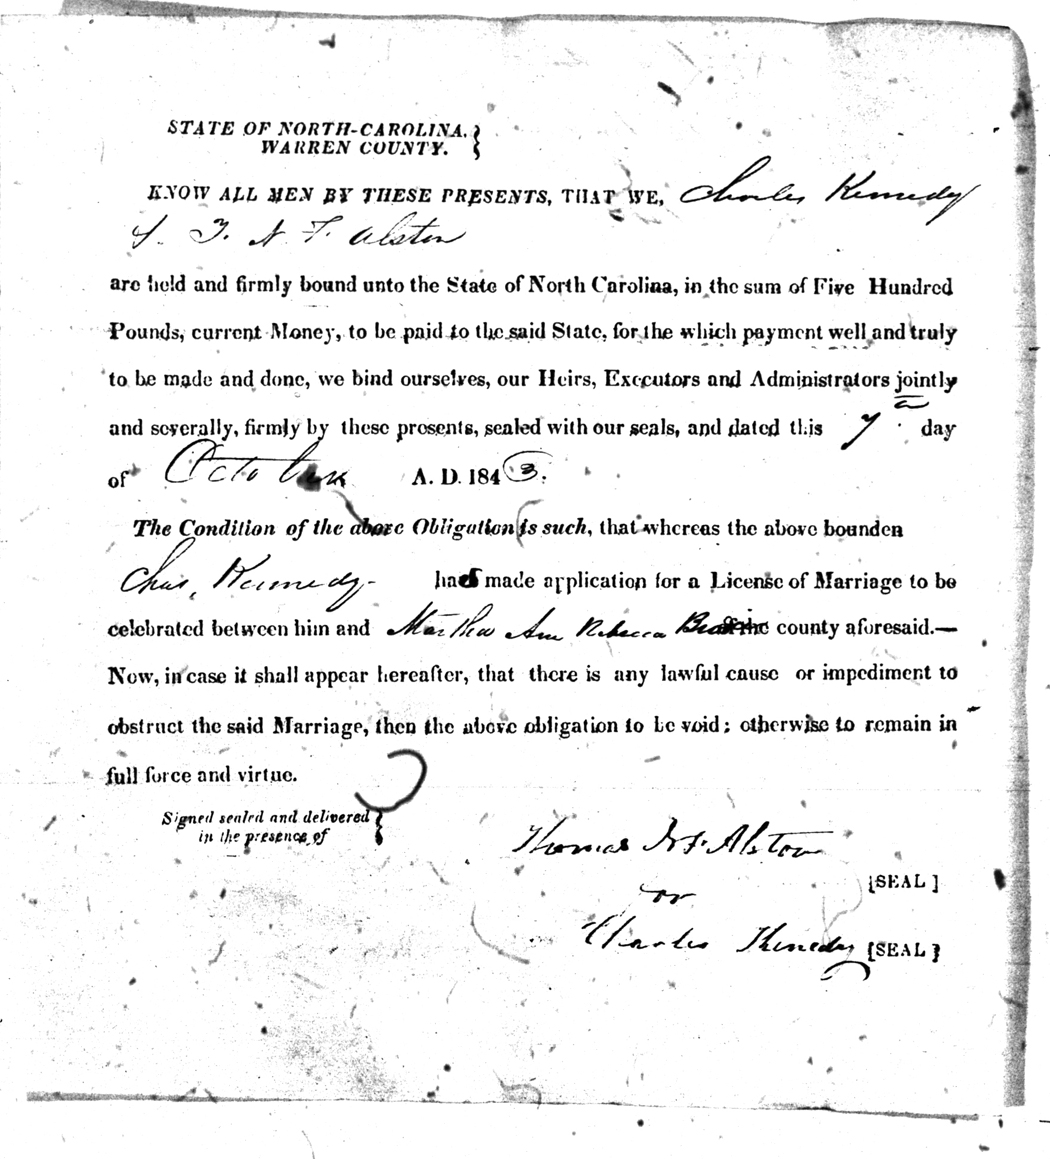 STATE OF NORTH-CAROLINA,
WARREN COUNTY.
KNOW ALL MEN BY THESE PRESENTS, THAT WE, Charles Kennedy
& T. N. F. Alston
are held and firmly bound unto the State of North Carolina, in the sum of Five Hundred
Pounds, current Money, to be paid to the said State, for the which payment well and truly
to be made and done, we bind ourselves, our Heirs, Executors and Administrators jointly
and severally, firmly by these presents, sealed with our seals, and dated this 7 day
of October A. D. 1843.
The Condition of the above Obligation is such, that whereas the above bounden
Chas, Kennedy has made application for a License of Marriage to be
celebrated between him and Martha Ann Rebecca of the county aforesaid.—
Now, in case it shall appear hereafter, that there is any lawful cause or impediment to
obstruct the said Marriage, then the above obligation to be void; otherwise to remain in
full force and virtue.
Signed sealed and delivered
in the presence of
Thomas N F. Alston
[SEAL]
Charles Kenedy [SEAL]